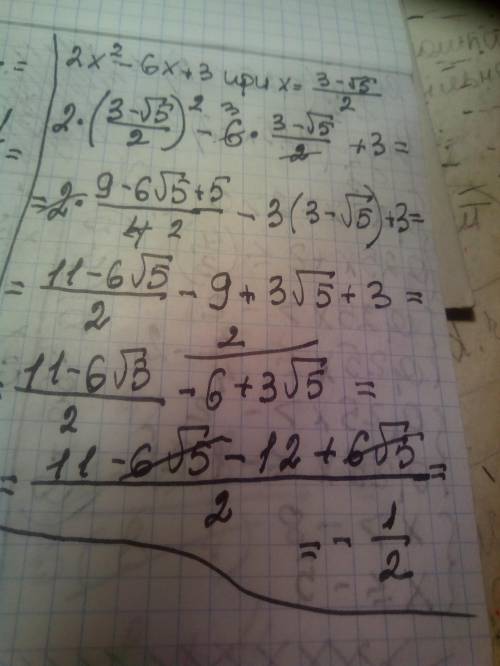 2x² - 6x + 3 при x = (3-√5)/2
2·((3-√5)/2)² - 6³· (3-√5)/2 + 3 =
= 2· (9-6√5+5)/4 2 - 3(3-√5)+3=
= (11-6√5)/2 - 9 + 3√5 + 3 =
(11-6√3)/2 - 6 + 3√5 2 =
= (11-6√5-12+6√5)/2 =
= - 1/2